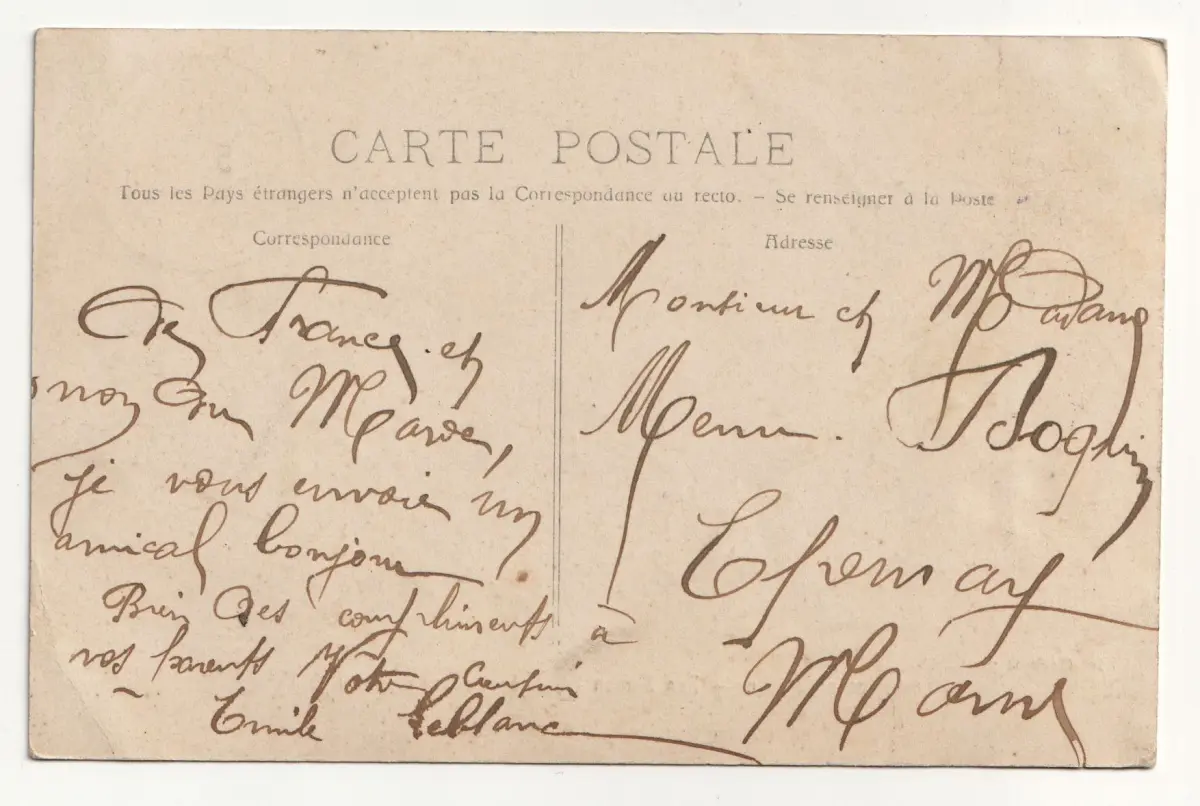 CARTE POSTALE
Tous les Pays étrangers n'acceptent pas la Correspondance au recto. – Se renseigner à la Poste
Correspondance
et
je vous envoie un
amical bonjour
Bien des compliments à
vos parents Votre cousin
Emile Leblanc
Adresse
Monsieur et Madame
Epernay
Marne